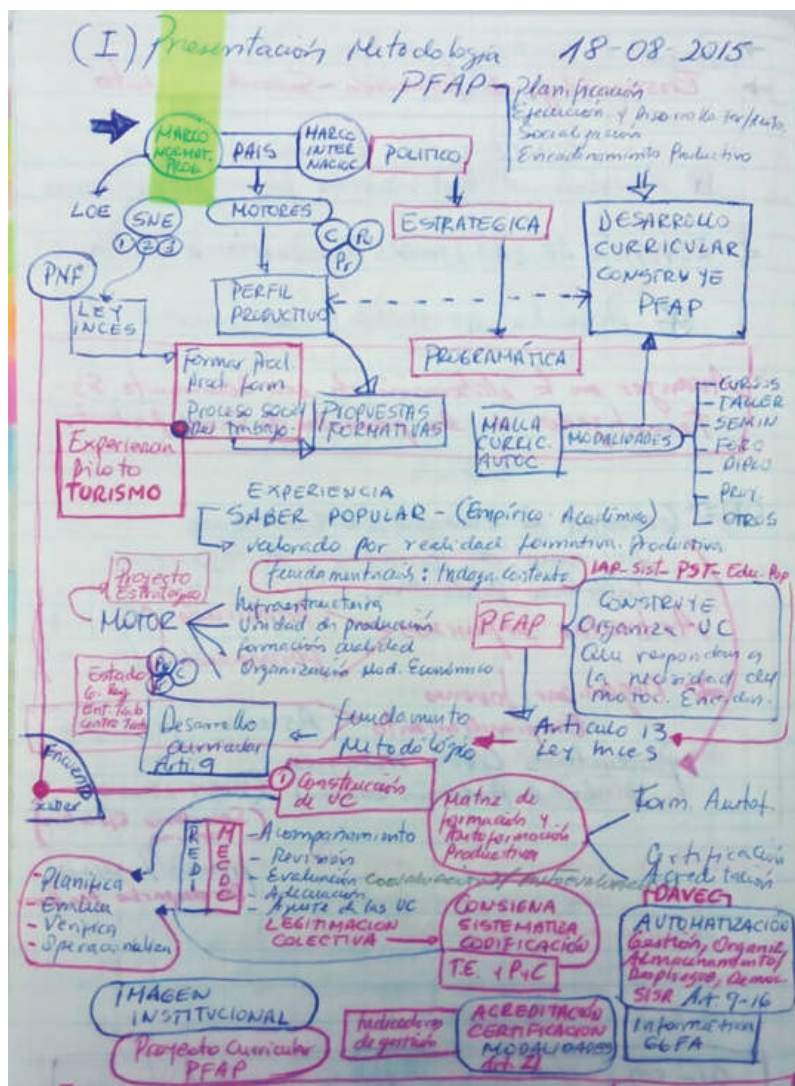 (I) Presentación Metodología 18-08-2015
PFAP - Planificación
Ejecución y Desarrollo
Socialización
Encadenamiento Productivo
MARCO
NORMAT.
PROD
PAIS
MARCO
INTER
NACIOC
POLITICO
LOE
SNE
1 2 3
MOTORES
C
Pr
ESTRATEGICA
DESARROLLO
CURRICULAR
CONSTRUYE
PFAP
PNF
LEY
INCES
PERFIL
PRODUCTIVO
PROGRAMÁTICA
Formar Prod
Prod. form
Proceso social
del trabajo
PROPUESTAS
FORMATIVAS
MALLA
CURRIC.
AUTOC
MODALIDADES
- CURSOS
- TALLER
- SEMIN
- FORO
- DIPLO
- PROY.
- OTROS
Experiencia
Piloto
TURISMO
EXPERIENCIA
SABER POPULAR - (Empírico - Académico)
valorado por realidad formativa. Productiva
fundamentación: Indaga. Contexto
IAP- Sist- PST- Edu. Pop
Projecto
Estratégico
MOTOR
Infraestructura
Unidad de producción
formación cualified
Organización Mod. Económico
PFAP
CONSTRUYE
Organiza UC
Que respondan a
la necesidad del
motor. Encadn.
Estado
Ent. Trab
Centro Trab
C
Desarrollo
curricular
Arti. 9
fundamento
Metodológico
Artículo 13
Ley Inces
Encuentro
Saber
1 Construcción
de UC
Matriz de
formación y
Autoformación
Productiva
Form. Autof.
Certificación
Acreditación
REDI
MECDC
- Acompañamiento
- Revisión
- Evaluación Coevaluación/Autoevaluación
- Adecuación
- Ajuste de las UC
LEGITIMACION
COLECTIVA
- Planifica
- Evalúa
- Verifica
- Operacionaliza
CONSIGNA
SISTEMATIZA
CODIFICACIÓN
T.E. y PyC
DAVEC
AUTOMATIZACIÓN
Gestión, Organiz,
Almacenamiento/
Despliegue, Democ.
SISR Art. 9-16
Informática
GGFA
IMAGEN
INSTITUCIONAL
Proyecto Curricular
PFAP
Indicadores
de gestión
ACREDITACIÓN
CERTIFICACIÓN
MODALIDADES
Art. 21